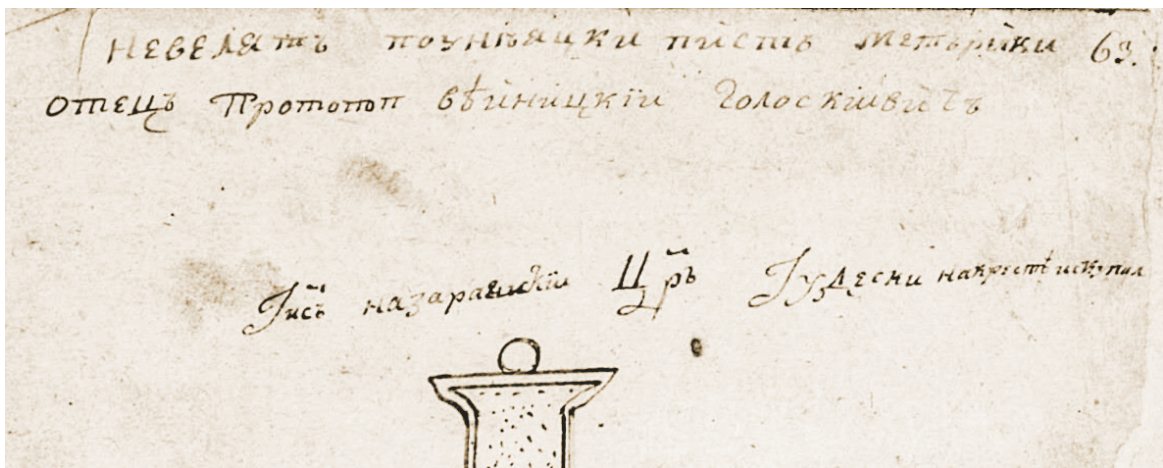 Невелятъ поунѣяцки писть метърики 63.
отецъ Протопоп вѣйницкїи Голоскїивичъ
Іисъ назараейскїи Црь Іудески накрестѣ искупил